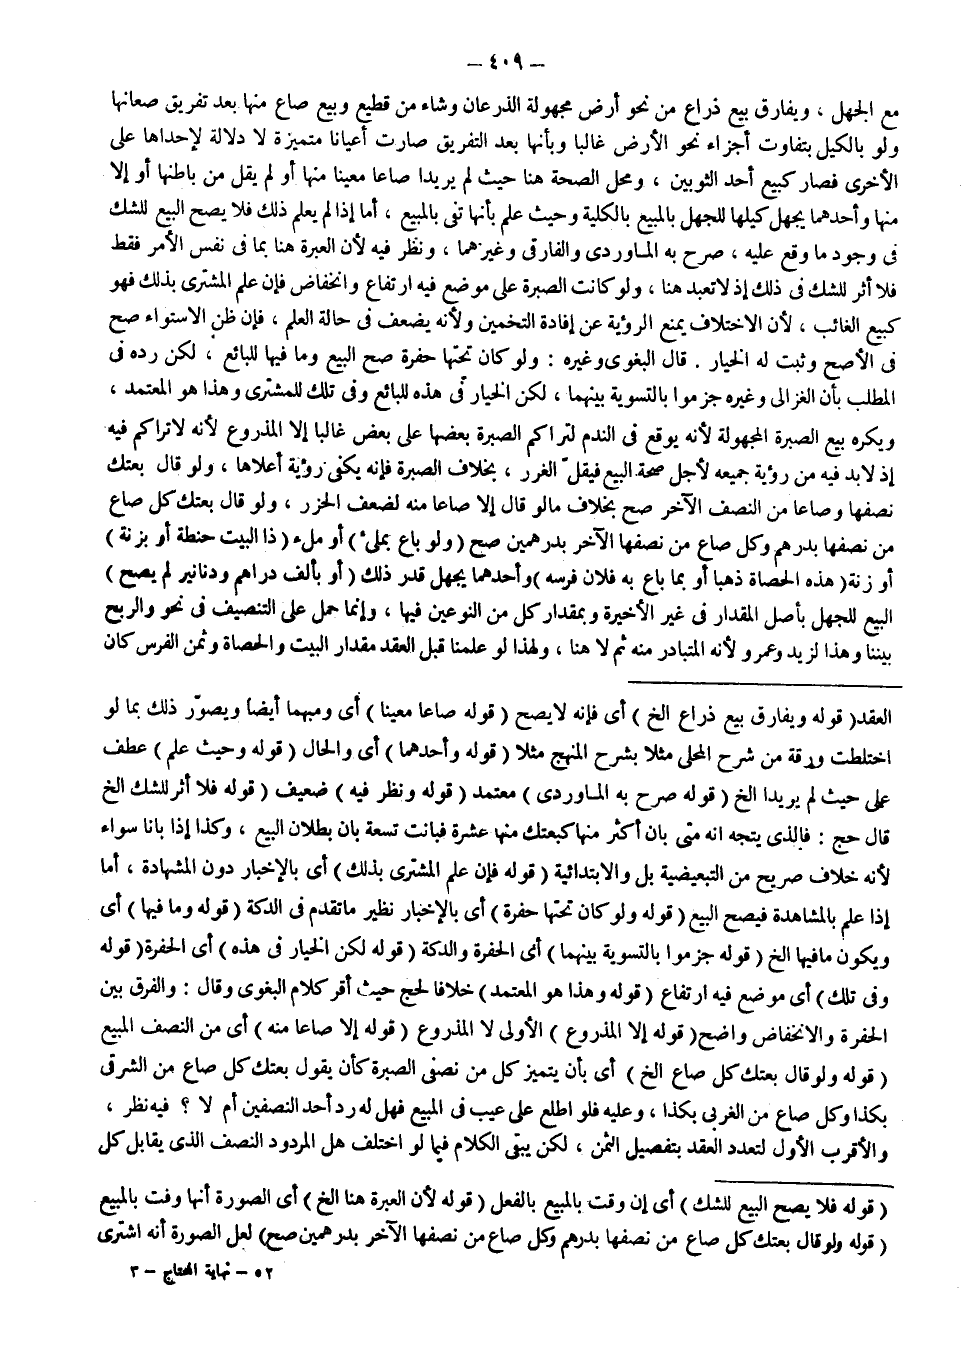 — ٤٠٩ —
مع الجهل ، ويفارق بيع ذراع من نحو أرض مجهولة الذرعان وشاء من قطيع وبيع صاع منها بعد تفريق صعانها
ولو بالكيل بتفاوت أجزاء نحو الأرض غالبا وبأنها بعد التفريق صارت أعيانا متميزة لا دلالة لإحداها على
الأخرى فصار كبيع أحد الثوبين ، ومحل الصحة هنا حيث لم يريدا صاعا معينا منها أو لم يقل من باطنها أو إلا
منها وأحدهما يجهل كيلها للجهل بالمبيع بالكلية وحيث علم بأنها تفى بالمبيع ، أما إذا لم يعلم ذلك فلا يصح البيع للشك
فى وجود ما وقع عليه ، صرح به المـاوردى والفارقى وغيرهما ، ونظر فيه لأن العبرة هنا بما فى نفس الأمر فقط
فلا أثر للشك فى ذلك إذ لا تعبد هنا ، ولو كانت الصبرة على موضع فيه ارتفاع وانخفاض فإن علم المشترى بذلك فهو
كبيع الغائب ، لأن الاختلاف يمنع الرؤية عن إفادة التخمين ولأنه يضعف فى حالة العلم ، فإن ظن الاستواء صح
فى الأصح وثبت له الخيار . قال البغوى وغيره : ولو كان تحتها حفرة صح البيع وما فيها للبائع ، لكن رده فى
المطلب بأن الغزالى وغيره جزموا بالتسوية بينهما ، لكن الخيار فى هذه للبائع وفى تلك للمشترى وهذا هو المعتمد ،
ويكره بيع الصبرة المجهولة لأنه يوقع فى الندم لتراكم الصبرة بعضها على بعض غالبا إلا المذروع لأنه لا تراكم فيه
إذ لابد فيه من رؤية جميعه لأجل صحة البيع فيقلّ الغرر ، بخلاف الصبرة فإنه يكفى رؤية أعلاها ، ولو قال بعتك
نصفها وصاعا من النصف الآخر صح بخلاف مالو قال إلا صاعا منه لضعف الحزر ، ولو قال بعتك كل صاع
من نصفها بدرهم وكل صاع من نصفها الآخر بدرهمين صح ( ولو باع بملىء ) أو ملء ( ذا البيت حنطة أو بزنة )
أو زنة ( هذه الحصاة ذهبا أو بما باع به فلان فرسه ) وأحدهما يجهل قدر ذلك ( أو بألف دراهم ودنانير لم يصح )
البيع للجهل بأصل المقدار فى غير الأخيرة وبمقدار كل من النوعين فيها ، وإنما حمل على التنصيف فى نحو والربح
بيننا وهذا لزيد وعمرو لأنه المتبادر منه ثم لا هنا ، ولهذا لو علمنا قبل العقد مقدار البيت والحصاة وثمن الفرس كان
العقد( قوله ويفارق بيع ذراع الخ ) أى فإنه لا يصح ( قوله صاعا معينا ) أى ومبهما أيضا ويصوّر ذلك بما لو
اختلطت ورقة من شرح المحلى مثلا بشرح المنهج مثلا ( قوله وأحدهما ) أى والحال ( قوله وحيث علم ) عطف
على حيث لم يريدا الخ ( قوله صرح به المـاوردى ) معتمد ( قوله ونظر فيه ) ضعيف ( قوله فلا أثر للشك الخ
قال حج : فالذى يتجه انه متى بان أكثر منها كبعتك منها عشرة فبانت تسعة بان بطلان البيع ، وكذا إذا بانا سواء
لأنه خلاف صريح من التبعيضية بل والابتدائية ( قوله فإن علم المشترى بذلك ) أى بالإخبار دون المشهادة ، أما
إذا علم بالمشاهدة فيصح البيع ( قوله ولو كان تحتها حفرة ) أى بالإخبار نظير ماتقدم فى الدكة ( قوله وما فيها ) أى
ويكون مافيها الخ ( قوله جزموا بالتسوية بينهما ) أى الحفرة والدكة ( قوله لكن الخيار فى هذه ) أى الحفرة( قوله
وفى تلك ) أى موضع فيه ارتفاع ( قوله وهذا هو المعتمد ) خلافا لحج حيث أقر كلام البغوى وقال : والفرق بين
الحفرة والانخفاض واضح( قوله إلا المذروع ) الأولى لا المذروع ( قوله إلا صاعا منه ) أى من النصف المبيع
( قوله ولو قال بعتك كل صاع الخ ) أى بأن يتميز كل من نصفى الصبرة كأن يقول بعتك كل صاع من الشرقى
بكذا وكل صاع من الغربى بكذا ، وعليه فلو اطلع على عيب فى المبيع فهل له رد أحد النصفين أم لا ؟ فيه نظر ،
والأقرب الأول لتعدد العقد بتفصيل الثمن ، لكن يبقى الكلام فيما لو اختلف هل المردود النصف الذى يقابل كل
( قوله فلا يصح البيع للشك ) أى إن وقت بالمبيع بالفعل ( قوله لأن العبرة هنا الخ ) أى الصورة أنها وفت بالمبيع
( قوله ولو قال بعتك كل صاع من نصفها بدرهم وكل صاع من نصفها الآخر بدرهمين صح) لعل الصورة أنه اشترى
٥٢ – نهاية المحتاج – ٣